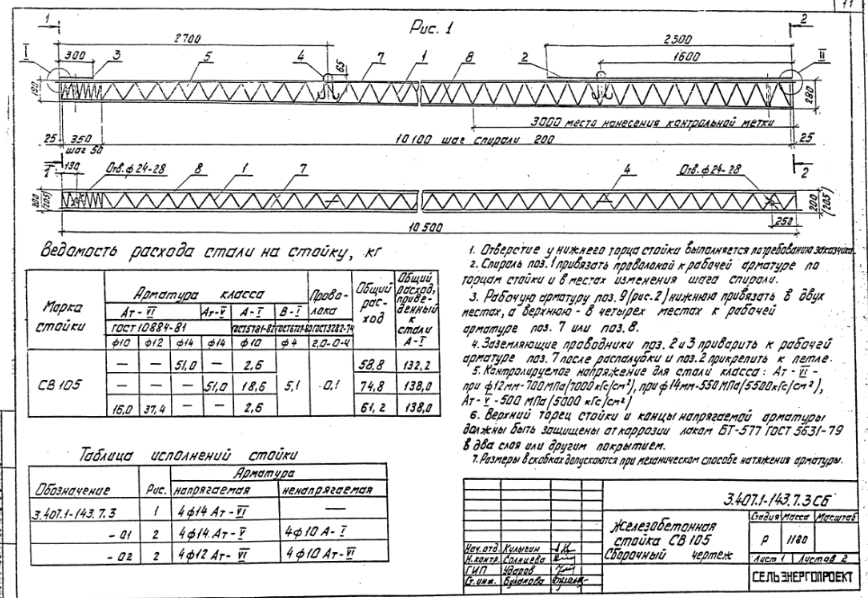 11
Рис. 1
1
2
2700
2300
I
300
3
5
4
65
7
1
8
2
1600
II
190
280
3000 место нанесения контрольной метки
25
350
10 100 шаг спирали 200
25
шаг 50
1
130
2
Отв. ф 24-28
8
1
7
4
Отв. ф 24-28
200
(205)
250
10 500
Ведомость расхода стали на стойку, кг
Марка стойки
Арматура класса
Прово-лока
Общий рас-ход
Общий расход, приве-денный к стали А-I
Ат-VI
Ат-V
А-I
В-I
ГОСТ 10884-81
ГОСТ5781-82
ГОСТ3282-74
ф10 ф12 ф14 ф14 ф10 ф4 2,0-0-4
СВ 105
— — 51,0 — 2,6 58,8 132,2
— — — 51,0 18,6 5,1 0,1 74,8 138,0
16,0 37,4 — — 2,6 61,2 138,0
Таблица исполнений стойки
Обозначение
Рис.
Арматура
напрягаемая
ненапрягаемая
3.407.1-143.7.3 1 4ф14 Ат-VI —
- 01 2 4ф14 Ат-V 4ф10 А-I
- 02 2 4ф12 Ат-VI 4ф10 Ат-VI
1. Отверстие у нижнего торца стойки выполняется по требованию заказчика.
2. Спираль поз. 1 привязать проволокой к рабочей арматуре по
торцам стойки и в местах изменения шага спирали.
3. Рабочую арматуру поз. 9 (рис. 2) нижнюю привязать в двух
местах, а верхнюю - в четырех местах к рабочей
арматуре поз. 7 или поз. 8.
4. Заземляющие проводники поз. 2 и 3 приварить к рабочей
арматуре поз. 7 после распалубки и поз. 2 прикрепить к петле.
5. Контролируемое напряжение для стали класса: Ат-VI -
при ф12мм-700 МПа(7000 кГс/см²), при ф14мм-550 МПа(5500кГс/см²),
Ат-V -500 МПа (5000 кГс/см²)
6. Верхний торец стойки и концы напрягаемой арматуры
должны быть защищены от коррозии лаком БТ-577 ГОСТ 5631-79
в два слоя или другим покрытием.
7. Размеры в скобках допускаются при механическом способе натяжения арматуры.
3.407.1-143.7.3 СБ
Железобетонная
стойка СВ 105
Сборочный чертеж
Стадия Масса Масштаб
Р 1180
Лист 1 Листов 2
СЕЛЬЭНЕРГОПРОЕКТ
Нач. отд. Кулыгин
Н.контр. Солнцева
ГИП Ударов